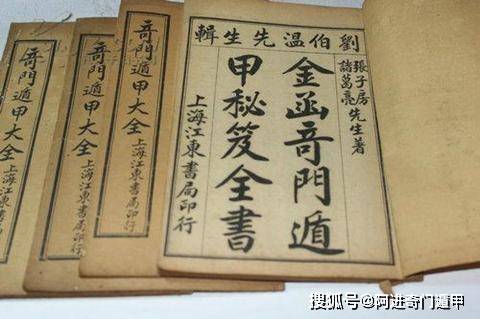 劉伯温先生輯
張子房
諸葛亮
先生著
金函竒門遁
甲秘笈全書
上海江東書局印行
竒門遁甲大全
上海江東書局印行
竒門遁甲大全
上海江東書局印行
竒門遁甲大全
上海江東書局印行
搜狐号@阿进奇门遁甲